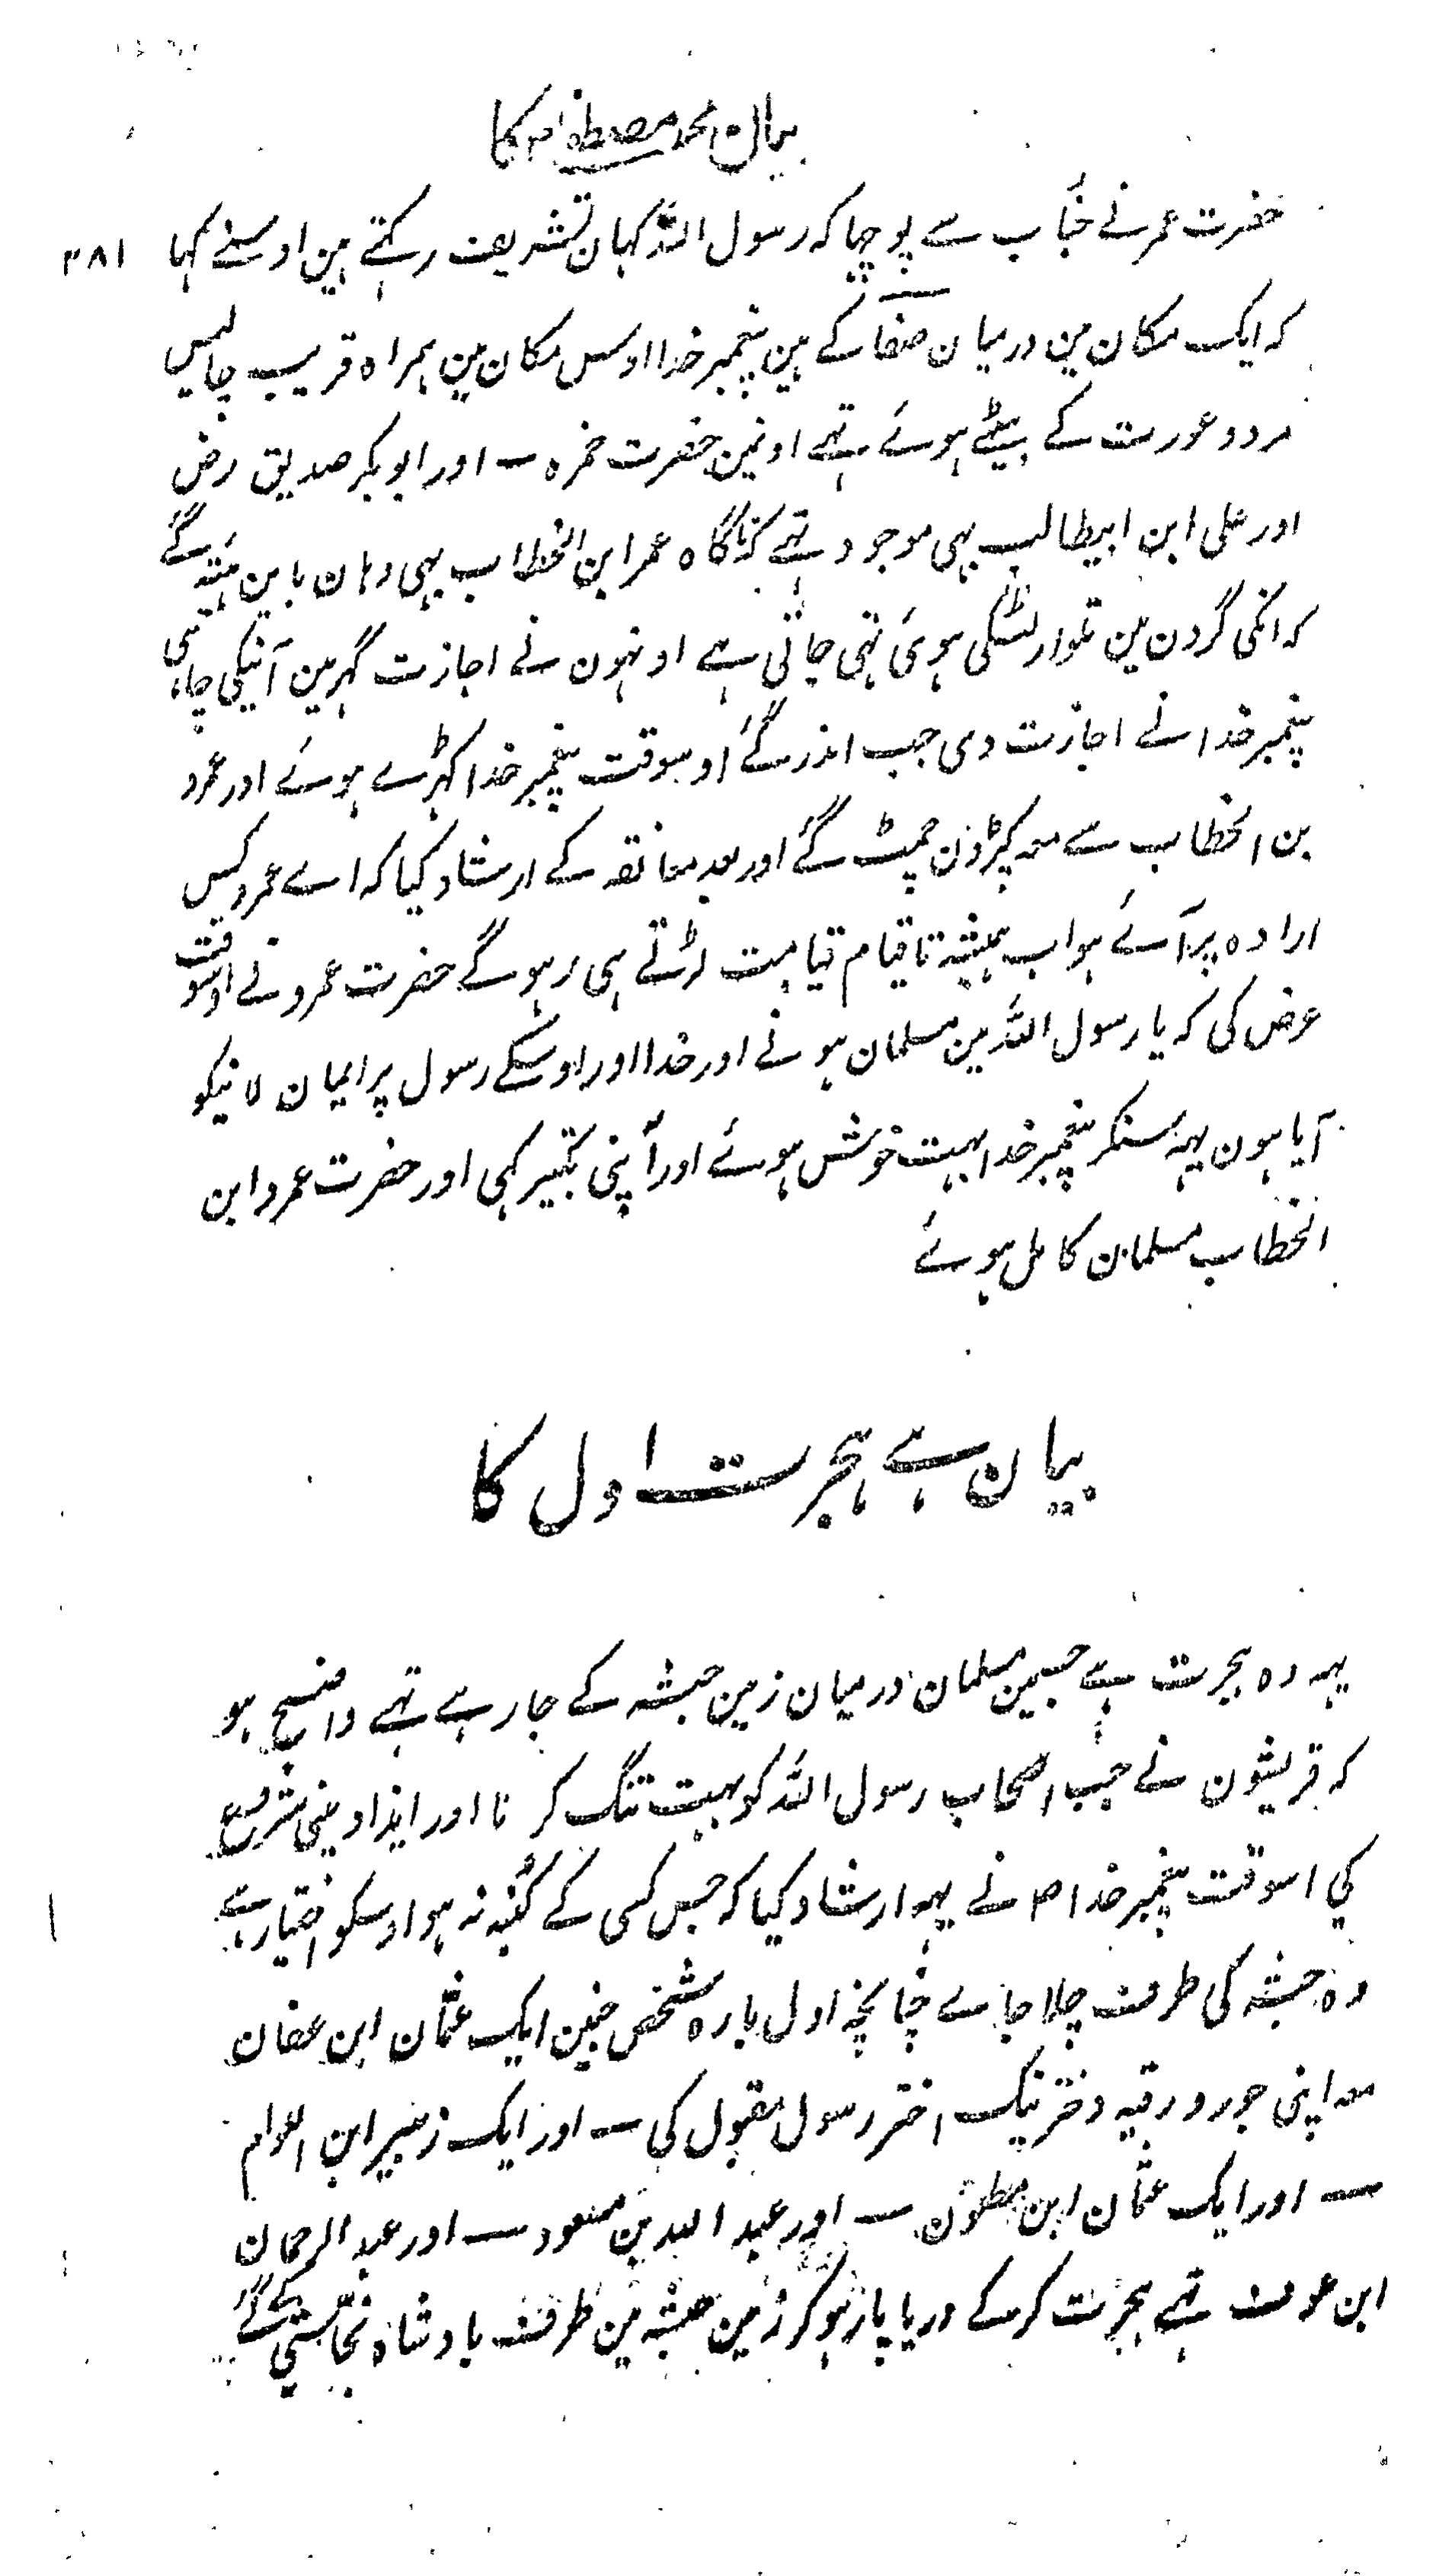 بیان محمد مصطفےٰ ص کا
حضرت عمر نے خباب سے پوچہا کہ رسول اللہ کہان تشریف رکہتے ہین اوسنے کہا ۳۸۱
کہ ایک مکان مین درمیان صفا کے ہین پیغمبر خدا اوس مکان مین ہمراہ قریب چالیس
مرد و عورت کے بیٹہے ہوئے تہے اونمین حضرت حمزہ ۔ اور ابوبکر صدیق رض
اور علی ابن ابیطالب بہی موجود تہے کہ ناگاہ عمر ابن الخطاب بہی وہان باین ہیئیۃ گئے
کہ انکی گردن مین تلوار لٹکی ہوئی تہی جاتی ہے اونہون نے اجازت گہر مین آنیکی چاہی
پیغمبر خدا نے اجازت دی جب اندر گئے اوسوقت پیغمبر خدا کہڑے ہوئے اور عمرو
بن الخطاب سے معہ کپڑون چمٹ گئے اور بعد معانقہ کے ارشاد کیا کہ اے عمرو کس
ارادہ پر آئے ہو اب ہمیشہ تا قیام قیامت لڑتے ہی رہو گے حضرت عمرو نے اوسوقت
عرض کی کہ یا رسول اللہ مین مسلمان ہونے اور خدا اور اوسکے رسول پر ایمان لانیکو
آیا ہون یہہ سنکر پیغمبر خدا بہت خوش ہوئے اور آپنی تکبیر کہی اور حضرت عمرو ابن
الخطاب مسلمان کامل ہوئے
بیان ہے ہجرت اول کا
یہہ وہ ہجرت ہے جسمین مسلمان درمیان زمین حبشہ کے جا رہے تہے واضح ہو
کہ قریشون نے جب اصحاب رسول اللہ کو بہت تنگ کرنا اور ایذا دینی شروع
کی اسوقت پیغمبر خدا ص نے یہہ ارشاد کیا کہ جس کسی کے کنبہ نہ ہو اوسکو اختیار ہے
وہ حبشہ کی طرف چلا جاے چنانچہ اول بارہ شخص جنمین ایک عثمان ابن عفان
معہ اپنی جورو رقیہ دختر نیک اختر رسول مقبول کی ۔ اور ایک زبیر ابن العوام
۔ اور ایک عثمان ابن مظعون ۔ اور عبد اللہ بن مسعود ۔ اور عبد الرحمان
ابن عوف تہے ہجرت کرکے دریا پار ہوکر زمین حبشہ مین طرف بادشاہ نجاشی کے گئے